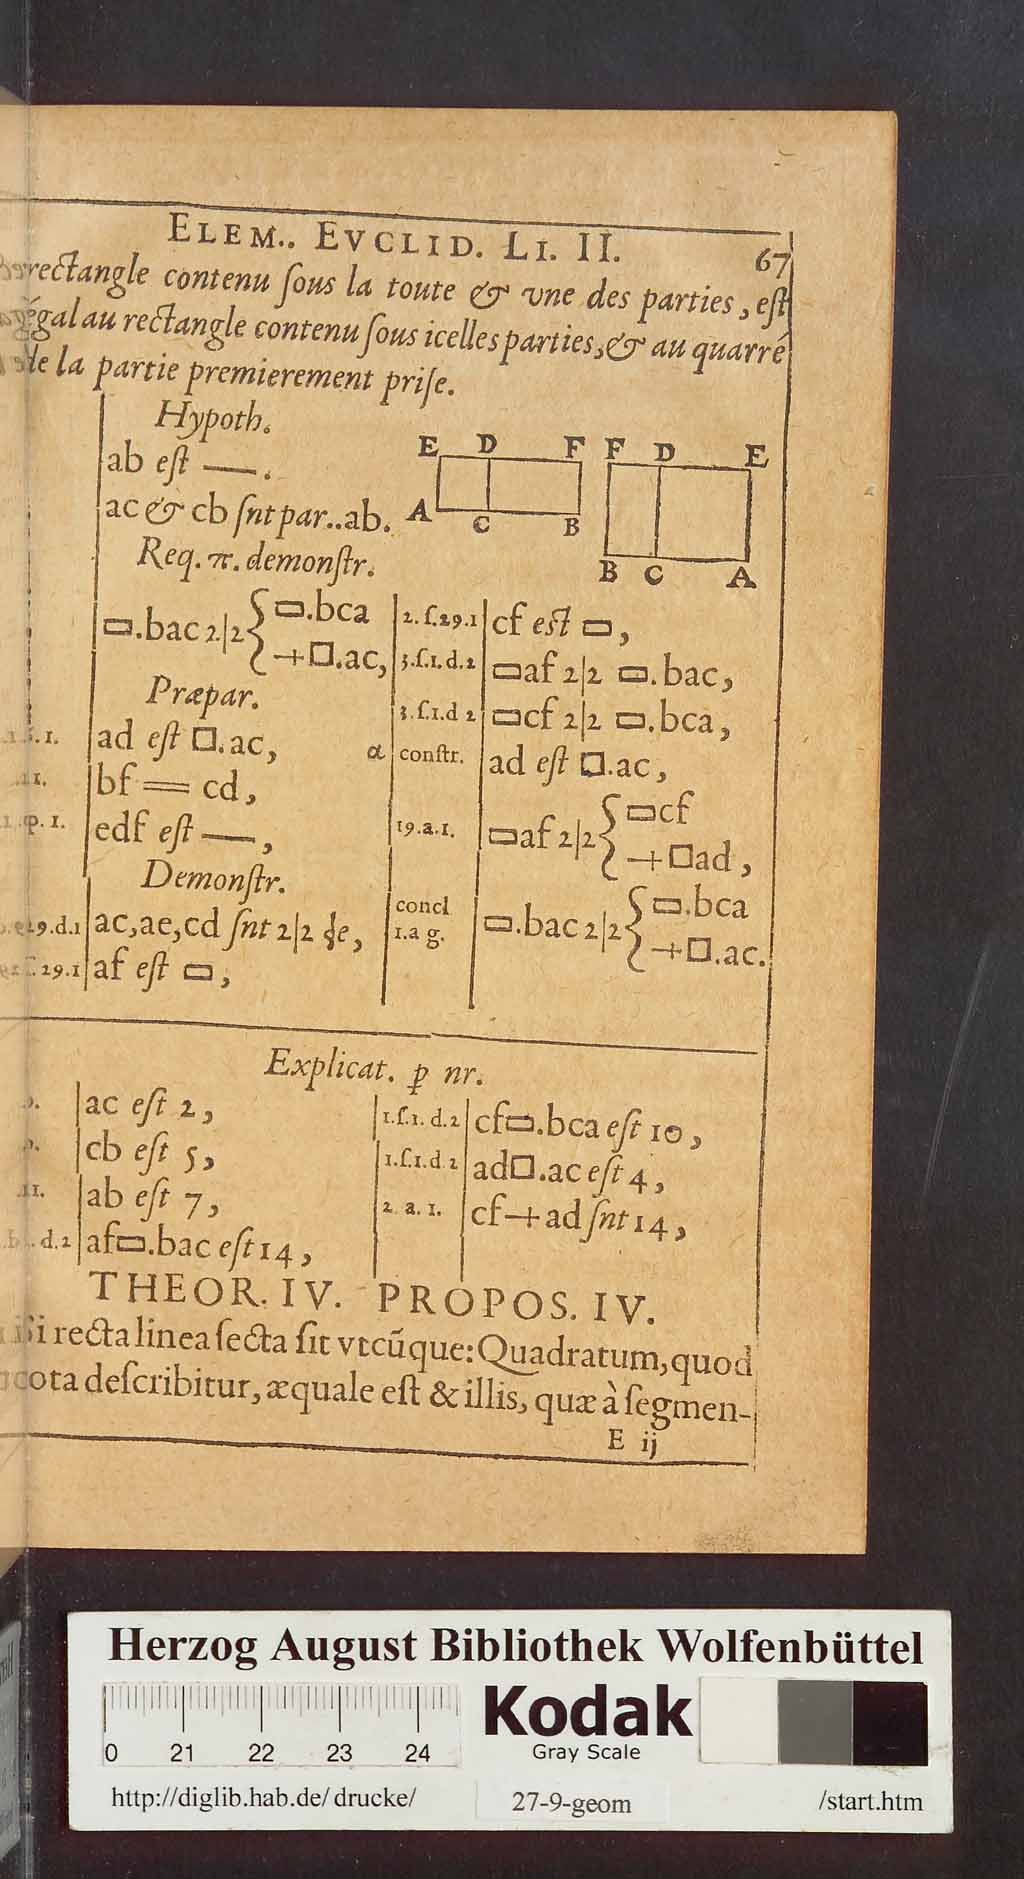 ELEM.. EVCLID. LI. II. 67
rectangle contenu ſous la toute & vne des parties, eſt
égal au rectangle contenu ſous icelles parties, & au quarré
de la partie premierement priſe.
Hypoth.
ab eſt —.
ac & cb ſnt par..ab.
Req. π. demonſtr.
▭.bac 2|2 { ▭.bca
+□.ac,
Præpar.
ad eſt □.ac,
bf = cd,
edf eſt —,
Demonſtr.
ac, ae, cd ſnt 2|2 de,
29.1 af eſt ▭,
E D F
A C B
F D E
B C A
2.ſ.29.1 cf eſt ▭,
3.ſ.1.d.2 ▭af 2|2 ▭.bac,
3.ſ.1.d 2 ▭cf 2|2 ▭.bca,
α conſtr. ad eſt □.ac,
19.a.1. ▭af 2|2 { ▭cf
+□ad,
concl
1.a g. ▭.bac 2|2 { ▭.bca
+□.ac.
Explicat. ꝑ nr.
ac eſt 2,
cb eſt 5,
ab eſt 7,
d.2 af▭.bac eſt 14,
1.ſ.1.d.2 cf▭.bca eſt 10,
1.ſ.1.d.2 ad□.ac eſt 4,
2.a.1. cf+ad ſnt 14,
THEOR. IV. PROPOS. IV.
Si recta linea ſecta ſit vtcūque: Quadratum, quod
tota deſcribitur, æquale eſt & illis, quæ à ſegmen-
E ij
Herzog August Bibliothek Wolfenbüttel
Kodak
Gray Scale
0 21 22 23 24
http://diglib.hab.de/drucke/ 27-9-geom /start.htm